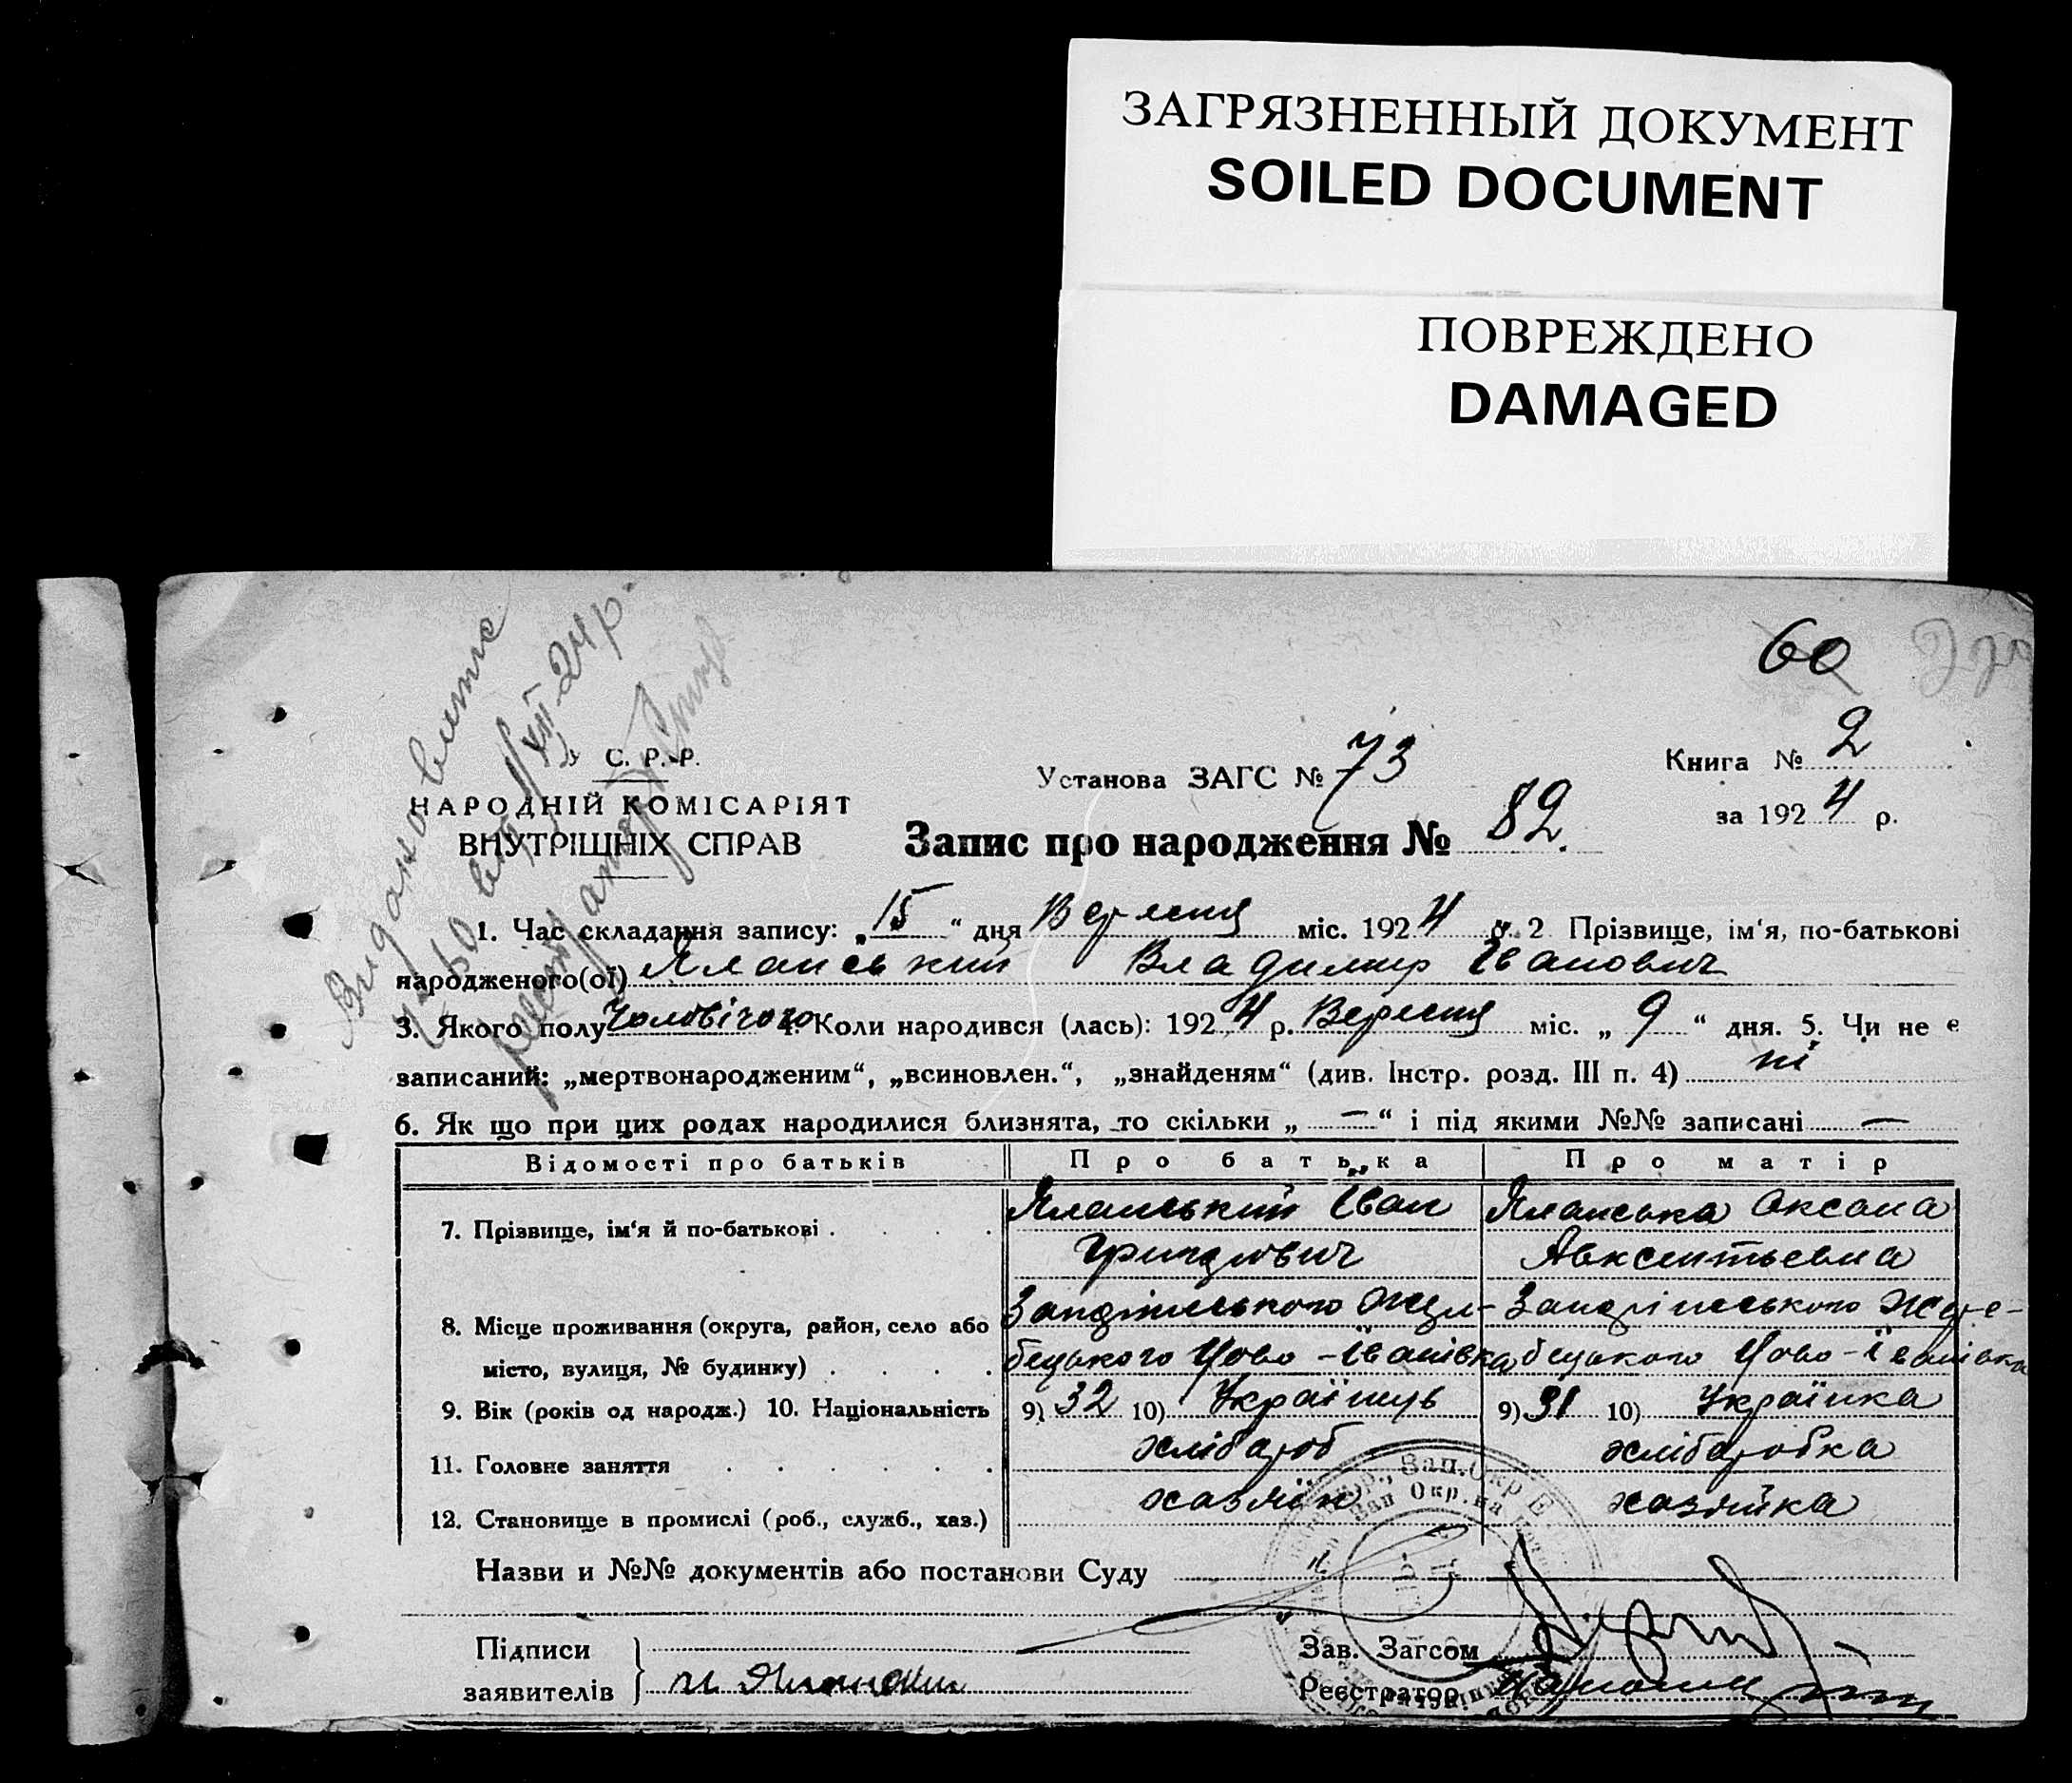 ЗАГРЯЗНЕННЫЙ ДОКУМЕНТ
SOILED DOCUMENT
ПОВРЕЖДЕНО
DAMAGED
60
С. Р. Р.
НАРОДНІЙ КОМІСАРІЯТ
ВНУТРІШНІХ СПРАВ
Установа ЗАГС № 73
Книга № 2
за 1924 р.
Запис про народження № 82.
1. Час складання запису: „15“ дня Вересня міс. 1924 р. 2 Прізвище, ім‘я, по-батькові
народженого(ої) Яланський Владимир Іванович
3. Якого полу Чоловічого 4. Коли народився (лась): 1924 р. Вересня міс. „9“ дня. 5. Чи не є
записаний: „мертвонародженим“, „всиновлен.“, „знайденям“ (див. Інстр. розд. III п. 4) ні
6. Як що при цих родах народилися близнята, то скільки „—“ і під якими №№ записані —
Відомості про батьків Про батька Про матір
7. Прізвище, ім‘я й по-батькові Яланський Іван Яланська Оксана
Авксентьевна
8. Місце проживання (округа, район, село або
місто, вулиця, № будинку) бецького Ново-Іванівка бецького Ново-Іванівка
9. Вік (років од народж.) 10. Національність 9) 32 10) Українець 9) 31 10) Українка
11. Головне заняття хлібороб хліборобка
12. Становище в промислі (роб., служб., хаз.) хазяїн хазяйка
Назви и №№ документів або постанови Суду
Підписи
заявителів
Зав. Загсом
Реєстратор